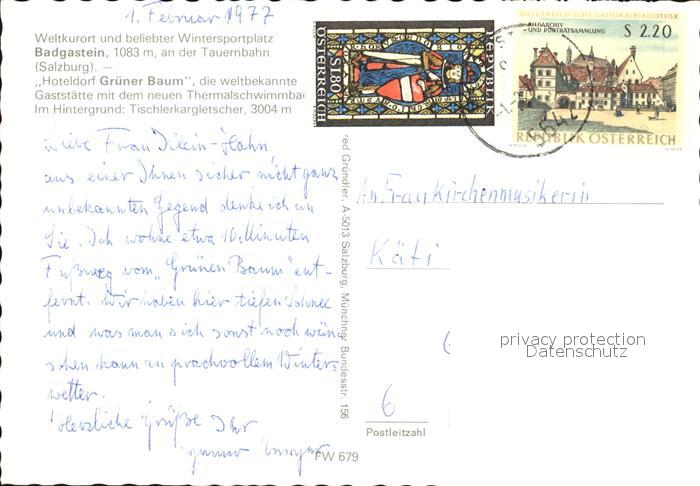 1. Februar 1977
Weltkurort und beliebter Wintersportplatz
Badgastein, 1083 m, an der Tauernbahn
(Salzburg). —
„Hoteldorf Grüner Baum", die weltbekannte
Gaststätte mit dem neuen Thermalschwimmbad
Im Hintergrund: Tischlerkargletscher, 3004 m
REPUBLIK
ÖSTERREICH
S1.80
ÖSTERREICHISCHE NATIONALBIBLIOTHEK
BILDARCHIV
UND PORTRÄTSAMMLUNG
S 2.20
REPUBLIK ÖSTERREICH
5642
Liebe Frau
aus einer Ihnen sicher nicht ganz
unbekannten Gegend denke ich an
Sie. Ich wohne etwa 10 Minuten
Fußweg vom „Grünen Baum" ent-
fernt. Wir haben hier tiefen Schnee
und was man sich sonst noch wün
schen kann an prachvollem Winters
wetter.
Herzliche Grüße Ihr
red Gründler, A-5013 Salzburg, Münchner Bundesstr. 156
An Frau Kirchenmusikerin
Käti
6
Postleitzahl
FW 679
privacy protection
Datenschutz